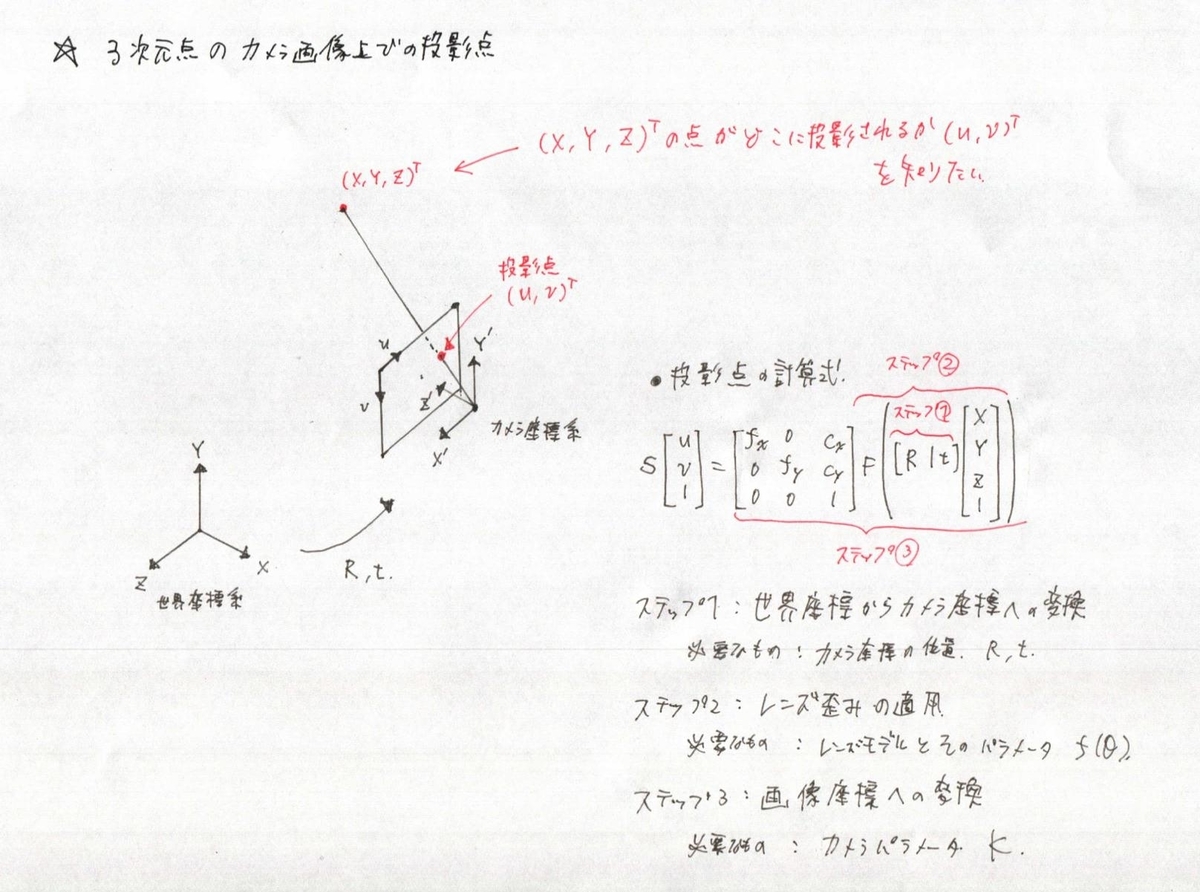 ☆ 3次元点のカメラ画像上での投影点
(X, Y, Z)ᵀの点がどこに投影されるか (u, v)ᵀ
を知りたい
(X, Y, Z)ᵀ
投影点
(u, v)ᵀ
u
v
Y'
Z'
X'
カメラ座標系
Y
Z
X
世界座標系
R, t.
● 投影点の計算式
ステップ②
ステップ①
S [u v 1] = [fx 0 cx
0 fy cy
0 0 1] F ([R | t] [X Y Z 1])
ステップ③
ステップ1 : 世界座標からカメラ座標への変換
必要なもの : カメラ座標の位置. R, t.
ステップ2 : レンズ歪みの適用
必要なもの : レンズモデルとそのパラメータ f(θ).
ステップ3 : 画像座標への変換
必要なもの : カメラパラメータ K.